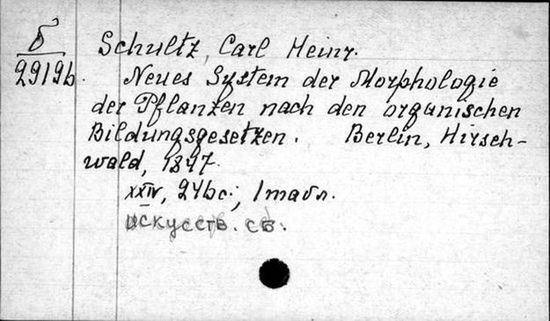 б
29196
Schultz, Carl Heinr.
Neues System der Morphologie
der Pflanzen nach den organischen
Bildungsgesetzen. Berlin, Hirsch-
wald, 1847.
XXIV, 246 с.; 1 табл.
искусств. св.